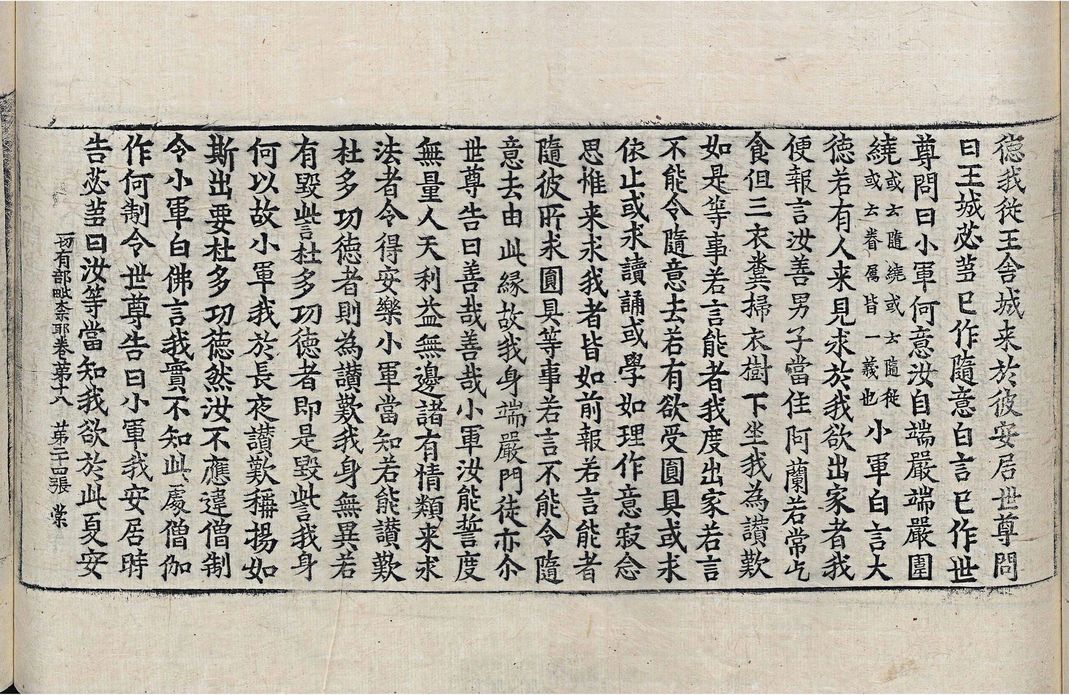 德我從王舍城来於彼安居世尊問
曰王城苾蒭已作隨意白言已作世
尊問曰小軍何意汝自端嚴端嚴圍
繞或云隨繞或云隨從
或云眷屬皆一義也小軍白言大
德若有人来見求於我欲出家者我
便報言汝善男子當住阿蘭若常乞
食但三衣糞掃衣樹下坐我為讃歎
如是等事若言能者我度出家若言
不能令隨意去若有欲受圓具或求
依止或求讀誦或學如理作意寂念
思惟来求我者皆如前報若言能者
隨彼所求圓具等事若言不能令隨
意去由此緣故我身端嚴門徒亦尒
世尊告曰善哉善哉小軍汝能誓度
無量人天利益無邊諸有情類来求
法者令得安樂小軍當知若能讃歎
杜多功德者則為讃歎我身無異若
有毀訾杜多功德者即是毀訾我身
何以故小軍我於長夜讃歎稱揚如
斯出要杜多功德然汝不應違僧制
令小軍白佛言我實不知此處僧伽
作何制令世尊告曰小軍我安居時
告苾蒭曰汝等當知我欲於此夏安
一切有部毗柰耶卷第十八 第二十四張 棠